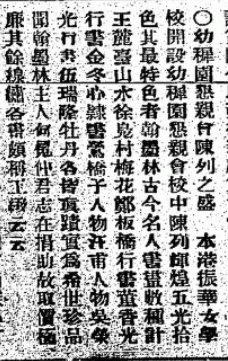 ○幼稚園懇親會陳列之盛　本港振華女學
校開設幼稚園懇親會校中陳列輝煌五光拾
色其最特色者翰墨林古今名人書畫數種計
王麓臺山水徐島村梅花鄭板橋行書董香光
行書金冬心隸書鶯橋子人物汪甫人物吳榮
光行書伍瑞隆牡丹各眞蹟實為希世珍品
聞翰墨林主人何罷仲君志在捐助故取價極
廉其餘綠繡各書頗稱工緻云云